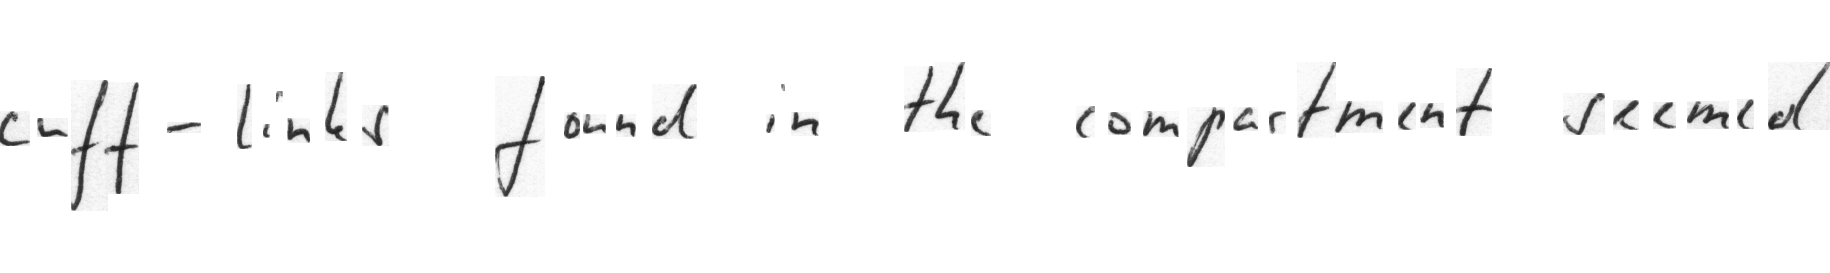 cuff-links found in the compartment seemed